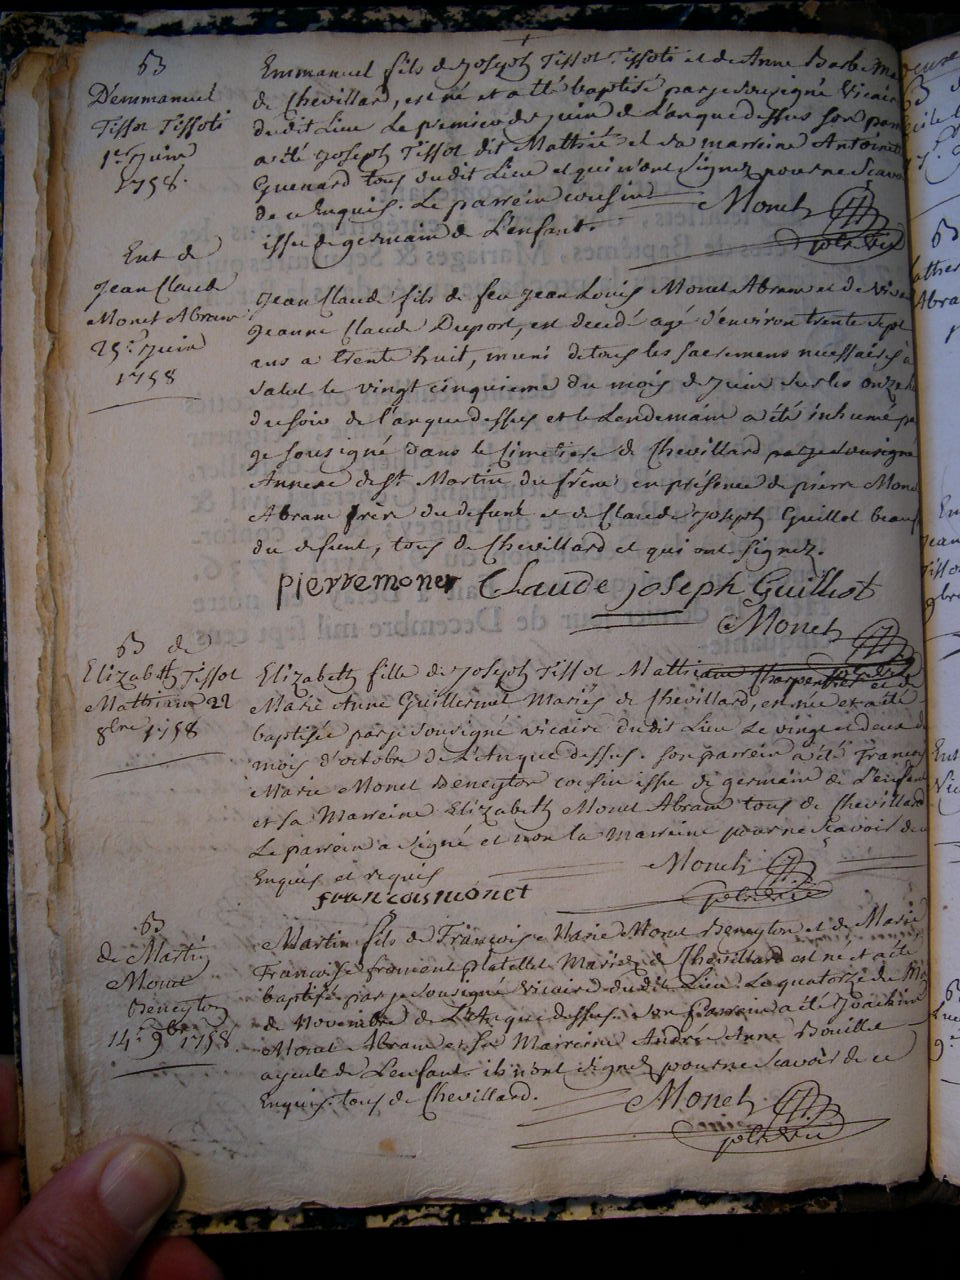 B
D'emmanuel
Tissot Tissoti
1er Juin
1758.
Emmanuel fils de Joseph Tissot Tissoti et de Anne Barbe
de Chevillard, est né et a été baptisé par je soussigné vicaire
dudit Lieu Le premier de juin de L'an que dessus son parr
a été Joseph Tissot dit Matthié et sa marreine Antoinet
Guenard tous dudit Lieu et qui n'ont signez pour ne scavoi
de ce Enquis. Le parrein cousin
issu de germain de L'enfant.
Monet
Ent de
Jean Claude
Monet Abram
25e Juin
1758
Jean Claude fils de feu Jean Louis Monet Abram et de
Jeanne Claude Duport, est decedé agé d'environ trente sept
ans a trente huit, muni de tous les sacremens necessaires à
salut le vingt cinquieme du mois de Juin sur les onze h
du soir de l'an que dessus et le Lendemain a été inhumé p
je sousigné dans le Cimetiere de Chevillard par je soussigné
Annexe de St Martin du frêne en présence de pierre Mone
Abram frère du defunt et de Claude Joseph Guillot beauf
du defunt, tous de Chevillard et qui ont signez.
pierre moner Claude joseph Guilliot
Monet
B de
Elizabeth Tissot
Mathieu 22
8bre 1758
Elizabeth fille de Joseph Tissot Mathieu Charpentier et de
Marie Anne Guillermet Mariés de Chevillard, est née et a été
baptisée par je sousigné vicaire dudit Lieu Le vingt et deux du
mois d'octobre de L'An que dessus. son parrein a été François
Marie Monet Beneyton cousin issu de germain de L'enfant
et sa Marreine Elizabeth Monet Abram tous de Chevillard
Le parrein a signé et non la Marreine pour ne scavoir de ce
Enquis et requis
Monet
francois monet
B
de Martin
Monet
Beneyton
14e 9bre 1758.
Martin fils de François Marie Monet Beneyton et de Marie
Françoise froment platellet Mariez de Chevillard est né et a été
baptisé par je sousigné vicaire dudit Lieu Le quatorze du Mois
de Novembre de L'An que dessus son Parrein a été Joachim
Monet Abram et sa Marreine Andrée Anne Bouillet
ayeule de L'enfant. ils n'ont signez pour ne scavoir de ce
Enquis. tous de Chevillard.
Monet